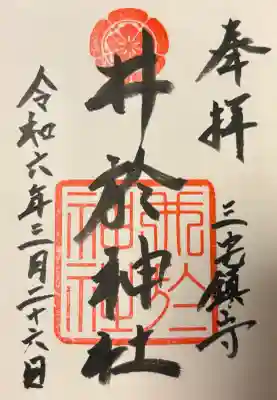 奉拝
三宅鎮守
井於神社
令和六年三月二十六日